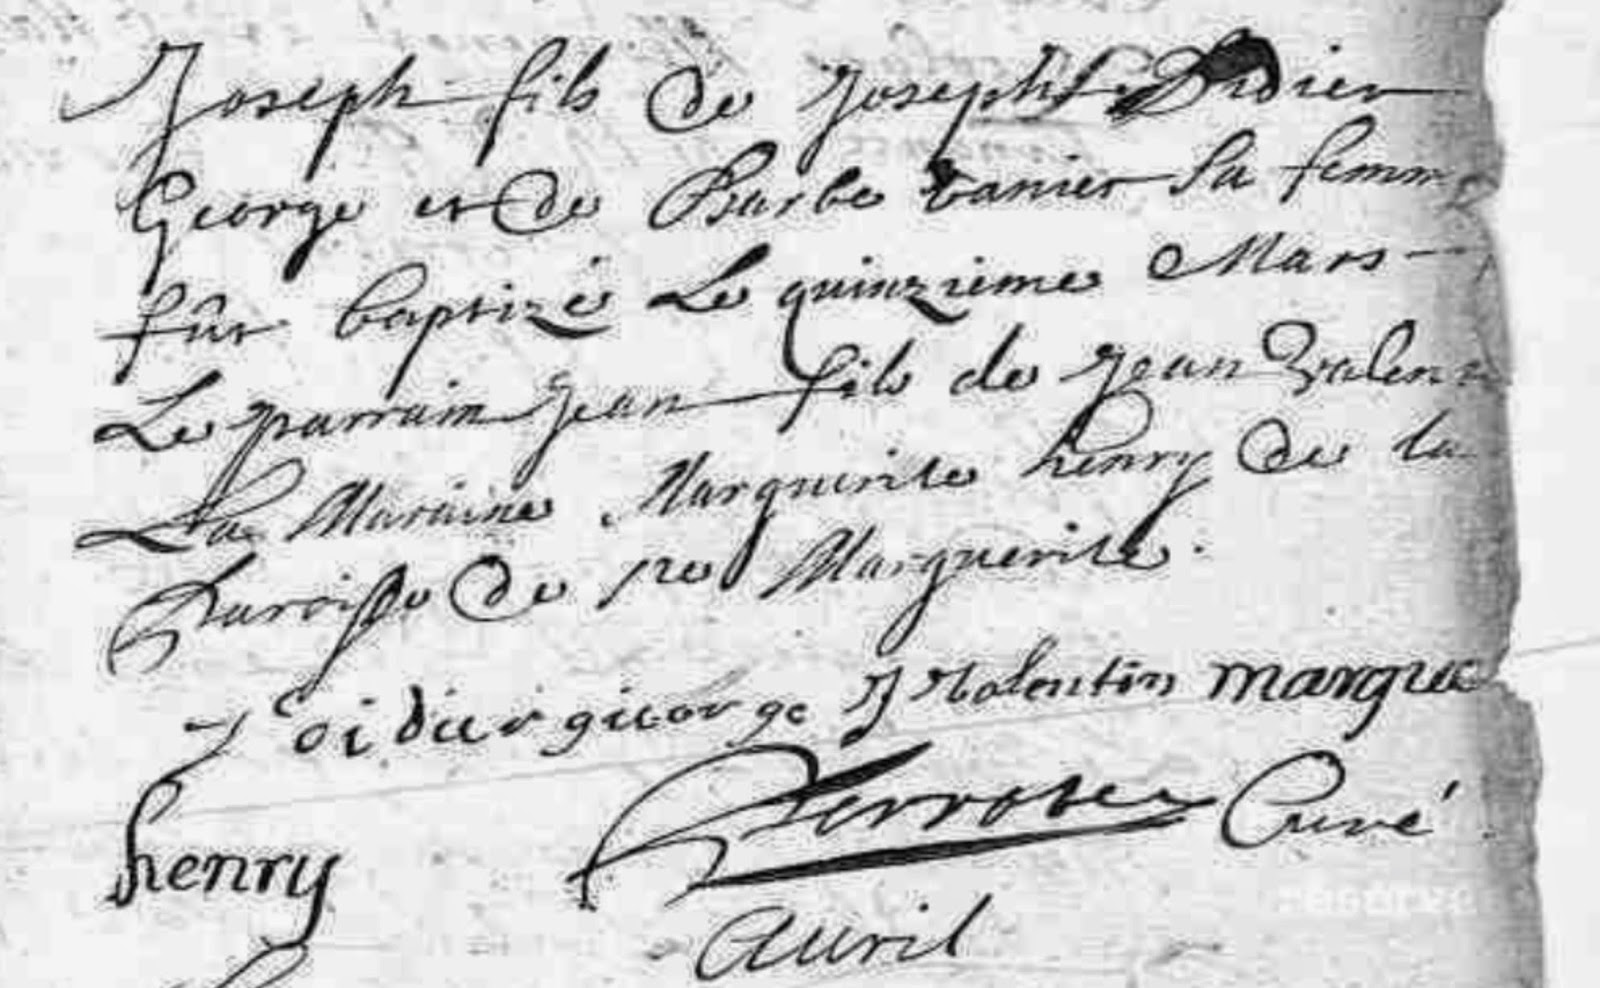 Joseph fils de Joseph Didier
George et de Barbe vanier sa femme
fût baptizé Le quinzieme Mars
Le parrain Jean fils de Jean Valentin
La Maraine Marguerite henry de la
Paroisse de ste Marguerite.
J oidier george J Valentin margue
henry Perrotey Curé
Avril